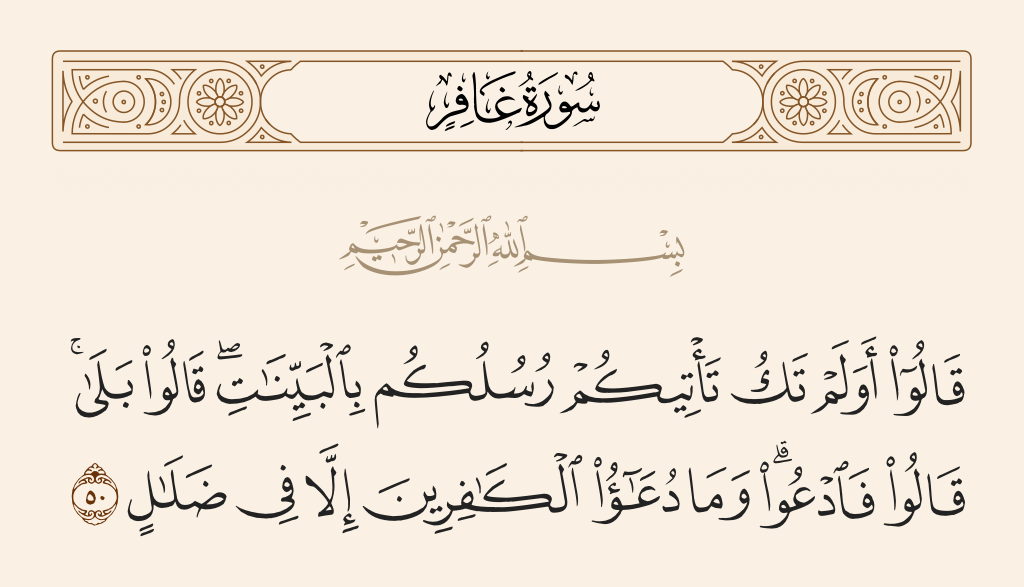 سُورَةُ غَافِرٍ
بِسْمِ ٱللَّهِ ٱلرَّحْمَٰنِ ٱلرَّحِيمِ
قَالُوٓا۟ أَوَلَمْ تَكُ تَأْتِيكُمْ رُسُلُكُم بِٱلْبَيِّنَٰتِ ۖ قَالُوا۟ بَلَىٰ ۚ
قَالُوا۟ فَٱدْعُوا۟ ۗ وَمَا دُعَٰٓؤُا۟ ٱلْكَٰفِرِينَ إِلَّا فِى ضَلَٰلٍ ٥٠